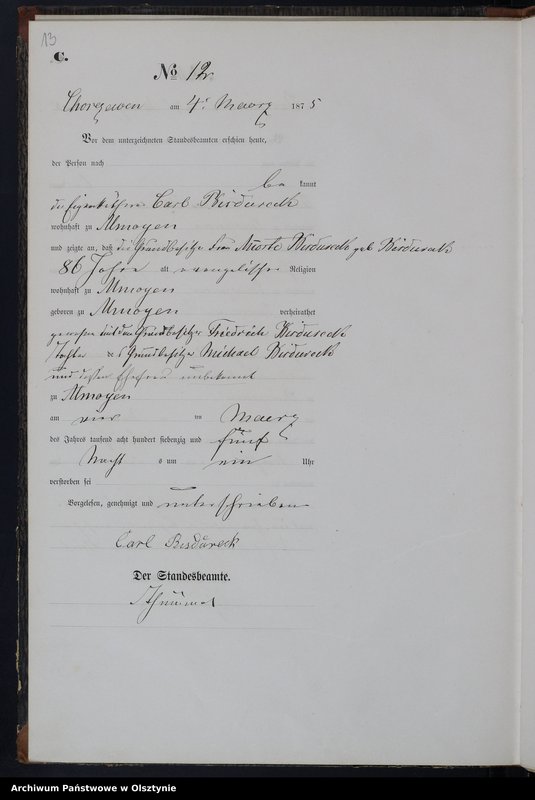 13
C.
No 12.
Chorzewen am 4. Maerz 1875
Vor dem unterzeichneten Standesbeamten erschien heute,
der Person nach
be kannt
der Eigenkäthner Carl Bisdureck
wohnhaft zu Almoyen
und zeigte an, daß die Grundbesitzer Frau geb
86 Jahre alt evangelischer Religion
wohnhaft zu Almoyen
geboren zu Almoyen verheirathet
gewesen mit dem Grundbesitzer Friedrich
Tochter des Grundbesitzer Michael
und dessen Ehefrau unbekannt
zu Almoyen
am vier ten Maerz
des Jahres tausend acht hundert siebenzig und fünf
Nacht s um ein Uhr
verstorben sei
Vorgelesen, genehmigt und unterschrieben
Carl Bisdureck
Der Standesbeamte.
Archiwum Państwowe w Olsztynie